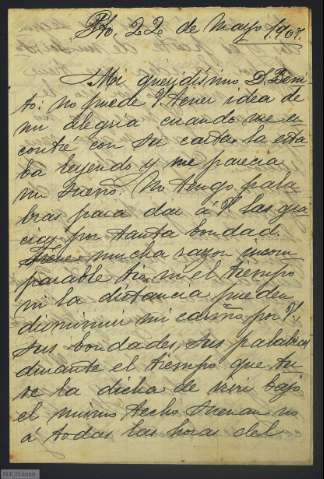 Pto, 22 de Mayo 1908.
Mi queridísimo D. Beni
to: no puede V. tener idea de
mi alegria cuando me en
contré con su carta, la esta
ba leyendo y me parecia
un sueño. No tengo pala
bras para dar á V. las gra
cias por tanta bondad.
Tiene mucha razon incom
parable tio ni el tiempo
ni la distancia pueden
disminuir mi cariño por V.,
sus bondades, sus palabras
durante el tiempo que tu
ve la dicha de vivir bajo
el mismo techo suenan
á todas las horas del